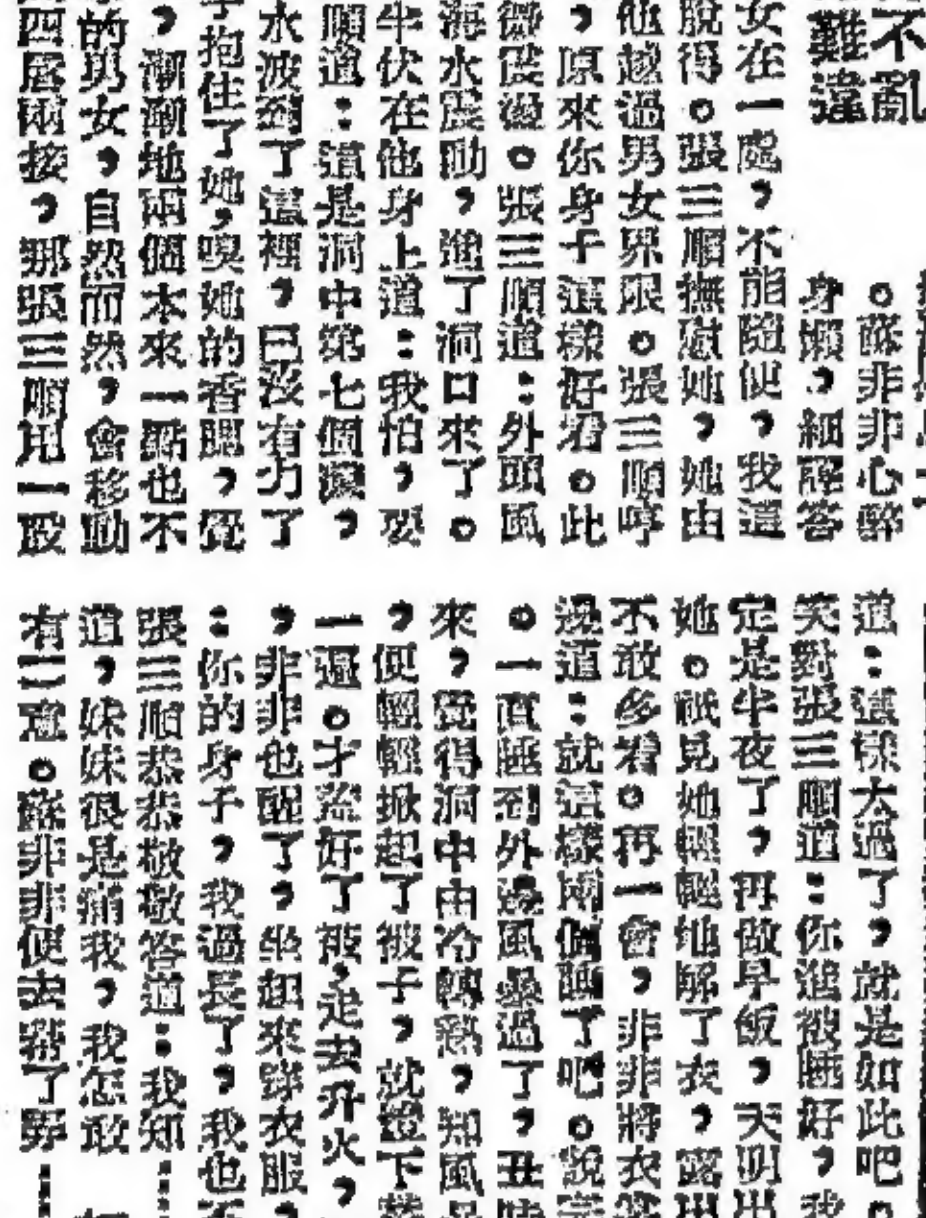 不亂
難違
。蘇非非心
身懶，細語答
女在一處，不能隨便，我這
脫得。張三順撫慰她，她由
他越過男女界限。張三順哼
，原來你身子這樣好看。此
微震後。張三順道：外頭風
海水震動，進了洞口來了。
半伏在他身上道：我怕，要
順道：這是洞中第七個浪，
水波到了這裡，已沒有力了
抱住了她，嗅她的香腮，覺
，漸漸地兩個本來一點也不
的男女，自然而然，會移動
四唇兩接，那張三順用一股
道：這樣太過了，就是如此吧。
笑對張三順道：你進被睡好，我
定是半夜了，再做早飯，天明出
她。祇見她輕輕地解了衣，露出
不敢多看。再一會，非非將衣
邊道：就這樣兩個睡了吧。說完
。一直睡到外邊風暴過了，丑時
來，覺得洞中由冷轉熱，知風
，便輕輕掀起了被子，就燈下
一遍。才蓋好了被，走去升火，
，非非也醒了，坐起來穿衣服，
：你的身子，我過長了，我也
張三順恭恭敬敬答道：我知
道，妹妹很是痛我，我怎敢
有二意。蘇非非便去幫了弄